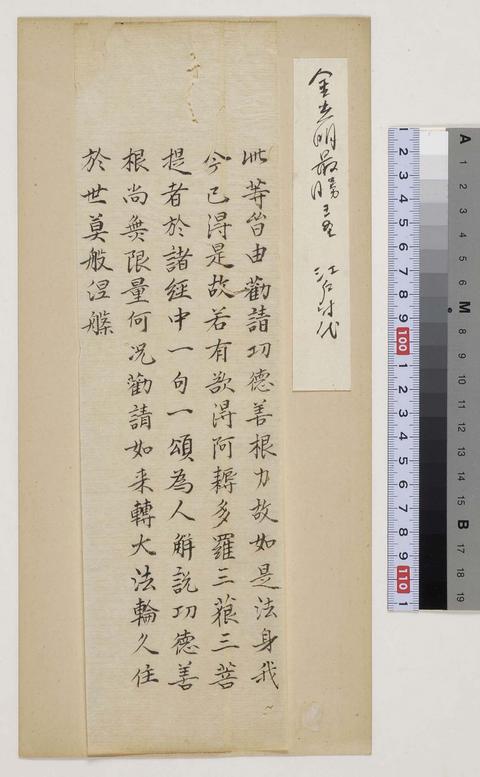 金光明最勝王経 江戸時代
此等皆由勸請功德善根力故如是法身我
今已得是故若有欲得阿耨多羅三藐三菩
提者於諸經中一句一頌為人解説功德善
根尚無限量何況勸請如来轉大法輪久住
於世莫般涅槃
A 1 2 3 4 5 6 M 8 9 10 11 12 13 14 15 B 17 18 19
1 2 3 4 5 6 7 8 9 100 1 2 3 4 5 6 7 8 9 110 1